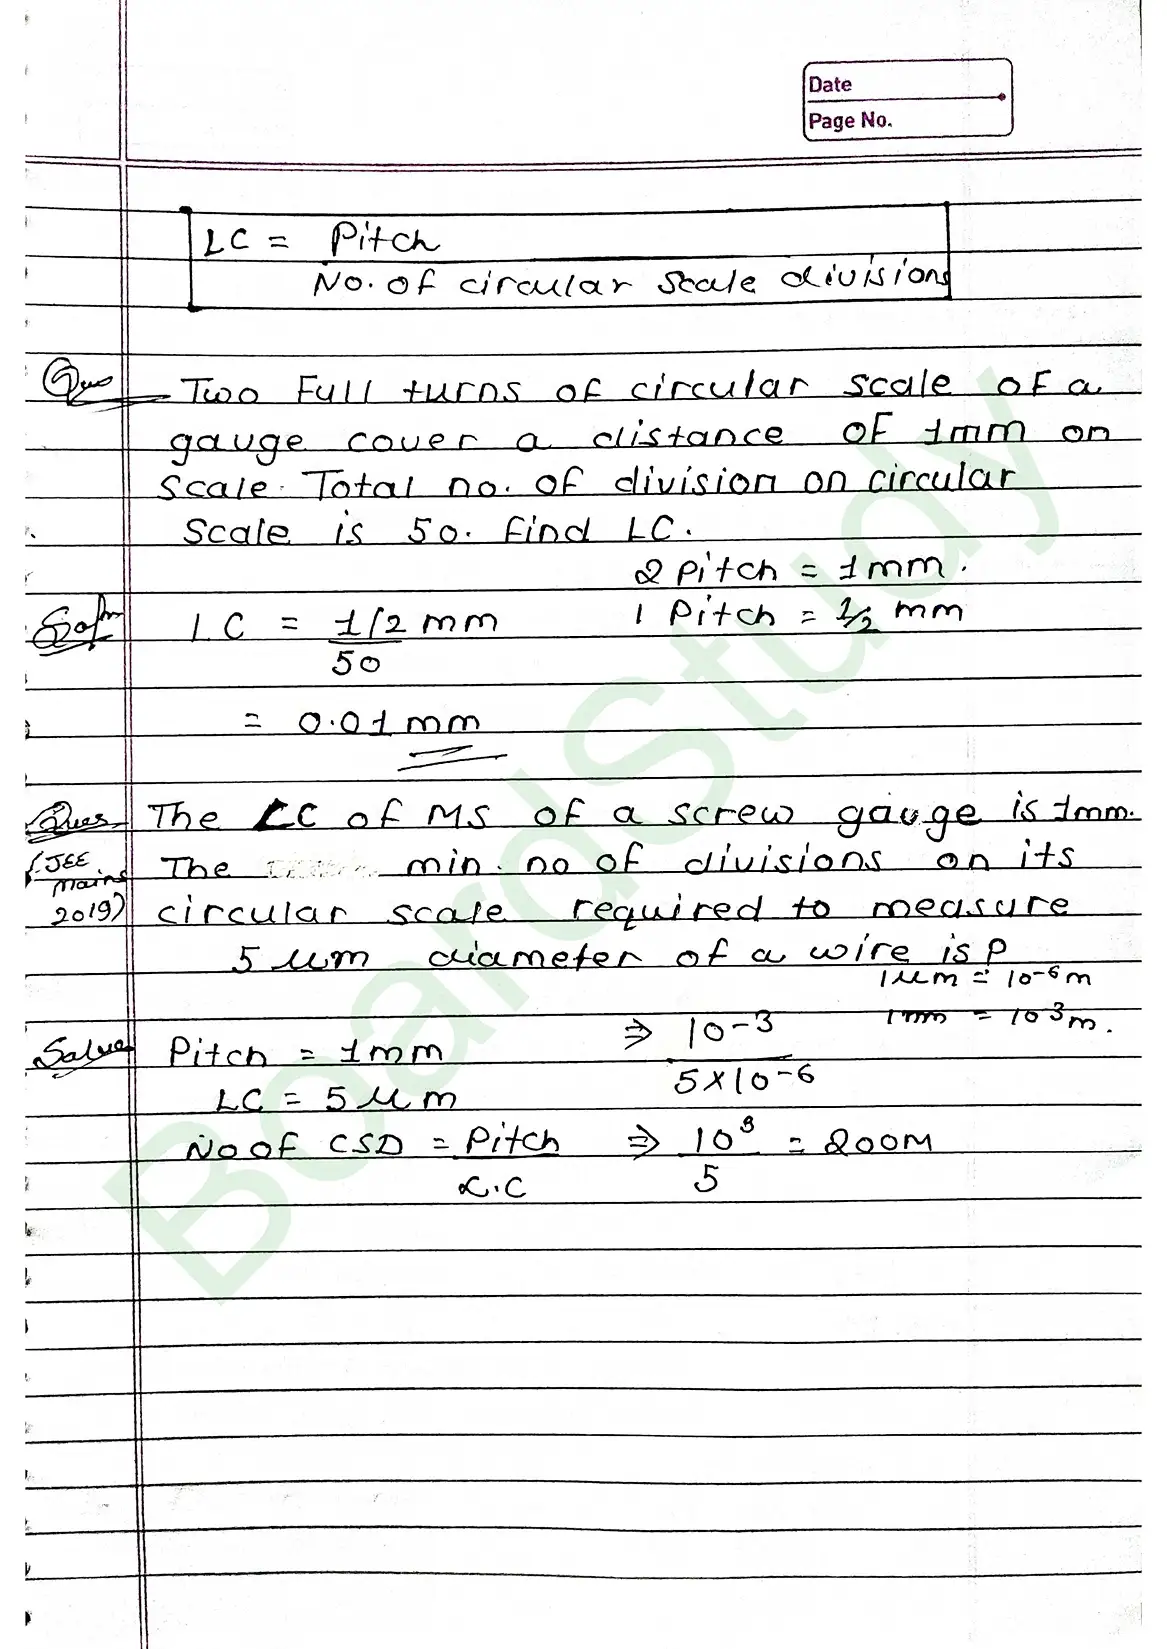 Date
Page No.
LC = Pitch
No. of circular scale divisions
Ques Two Full turns of circular scale of a
gauge cover a distance of 1mm on
scale. Total no. of division on circular
scale is 50. Find LC.
2 Pitch = 1mm.
1 Pitch = 1/2 mm
Soln LC = 1/2 mm
50
= 0.01 mm
Ques The LC of MS of a screw gauge is 1mm.
(JEE Mains 2019) The min. no of divisions on its
circular scale required to measure
5 μm diameter of a wire is P
1 μm = 10-6 m
1 mm = 10 3 m.
Solve Pitch = 1mm
LC = 5 μm
No of CSD = Pitch
L.C
⇒ 10-3
5×10-6
⇒ 10³ = 200M
5
BoardStudy